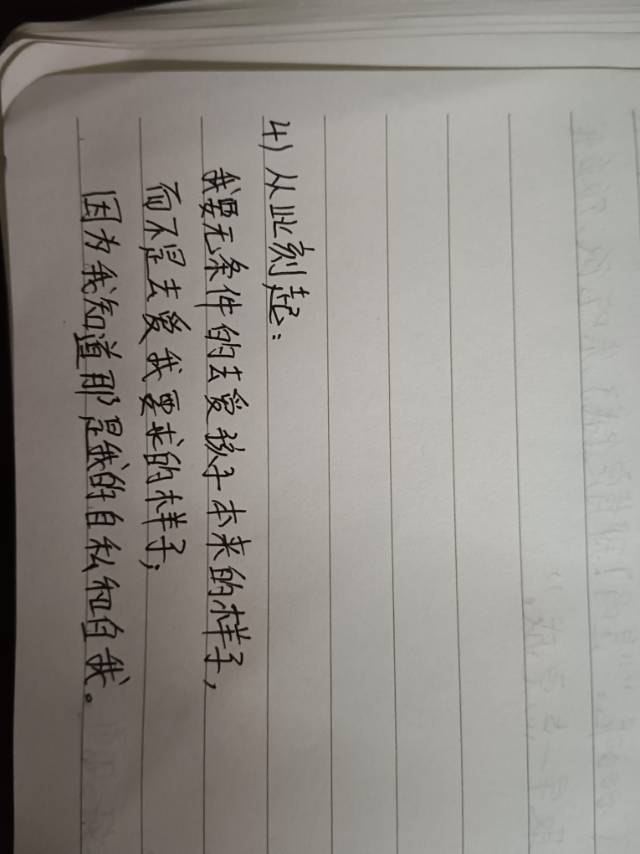 4) 从此刻起：
我要无条件的去爱孩子本来的样子，
而不是去爱我要求的样子，
因为我知道那是我的自私和自我。